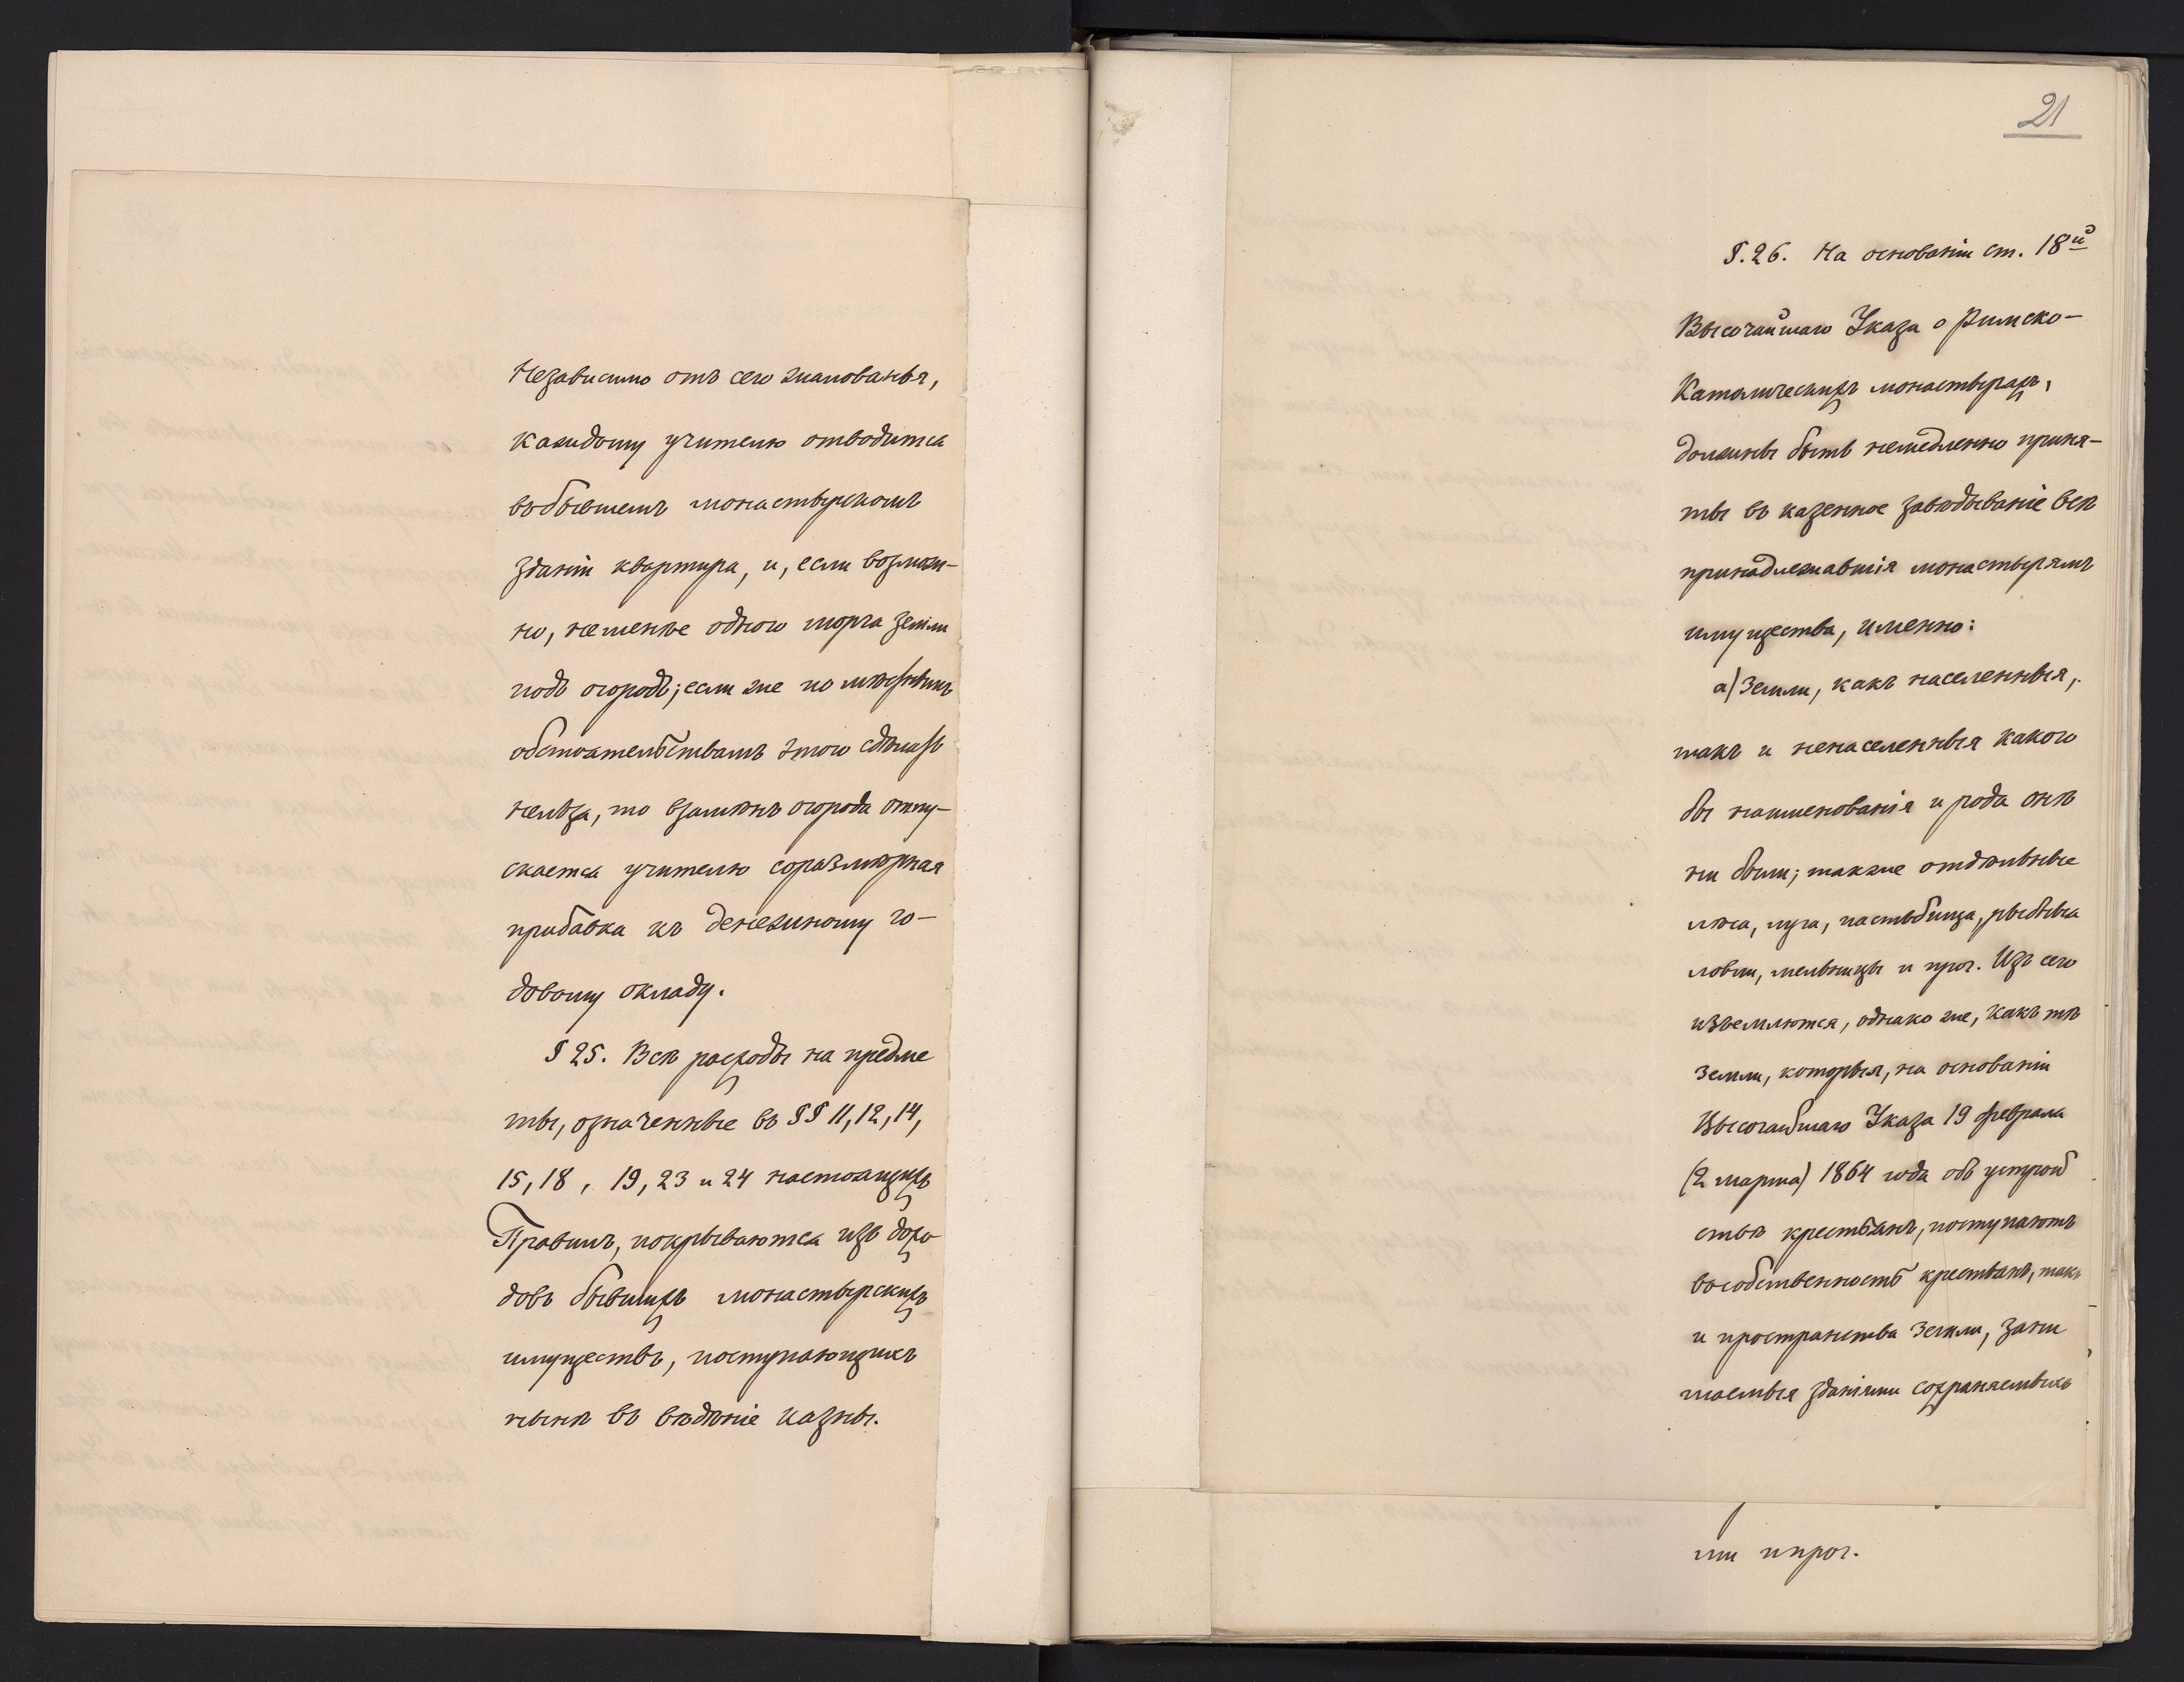 Независимо отъ сего жалованья,
каждому учителю отводится
въ бывшемъ монастырскомъ
зданіи квартира, и, если возмож-
но, неменѣе одного морга земли
подъ огородъ; если же по мѣстнымъ
обстоятельствамъ этого сдѣлать
нельзя, то взамѣнъ огорода отпу-
скается учителю соразмѣрная
прибавка къ денежному го-
довому окладу.
§ 25. Всѣ расходы на предме
ты, означенные въ §§ 11, 12, 14,
15, 18, 19, 23 и 24 настоящихъ
Правилъ, покрываются изъ дохо
довъ бывшихъ монастырскихъ
имуществъ, поступающихъ
нынѣ въ вѣдѣніе казны.
21
§. 26. На основаніи ст. 18й
Высочайшаго Указа о Римско-
Католическихъ монастыряхъ,
должны быть немедленно приня-
ты въ казенное завѣдываніе всѣ
принадлежавшія монастырямъ
имущества, именно:
а) Земли, какъ населенныя,
такъ и ненаселенныя какого
бы наименованія и рода онѣ
ни были; также отдѣльные
лѣса, луга, пастьбища, рыбныя
ловли, мельницы и проч. Изъ сего
изъемлются, однако же, какъ тѣ
земли, которыя, на основаніи
Высочайшаго Указа 19 февраля
(2 марта) 1864 года объ устрой
ствѣ крестьянъ, поступаютъ
въ собственность крестьянъ, такъ
и пространства земли, зани
маемыя зданіями сохраняемыхъ
ми и проч.